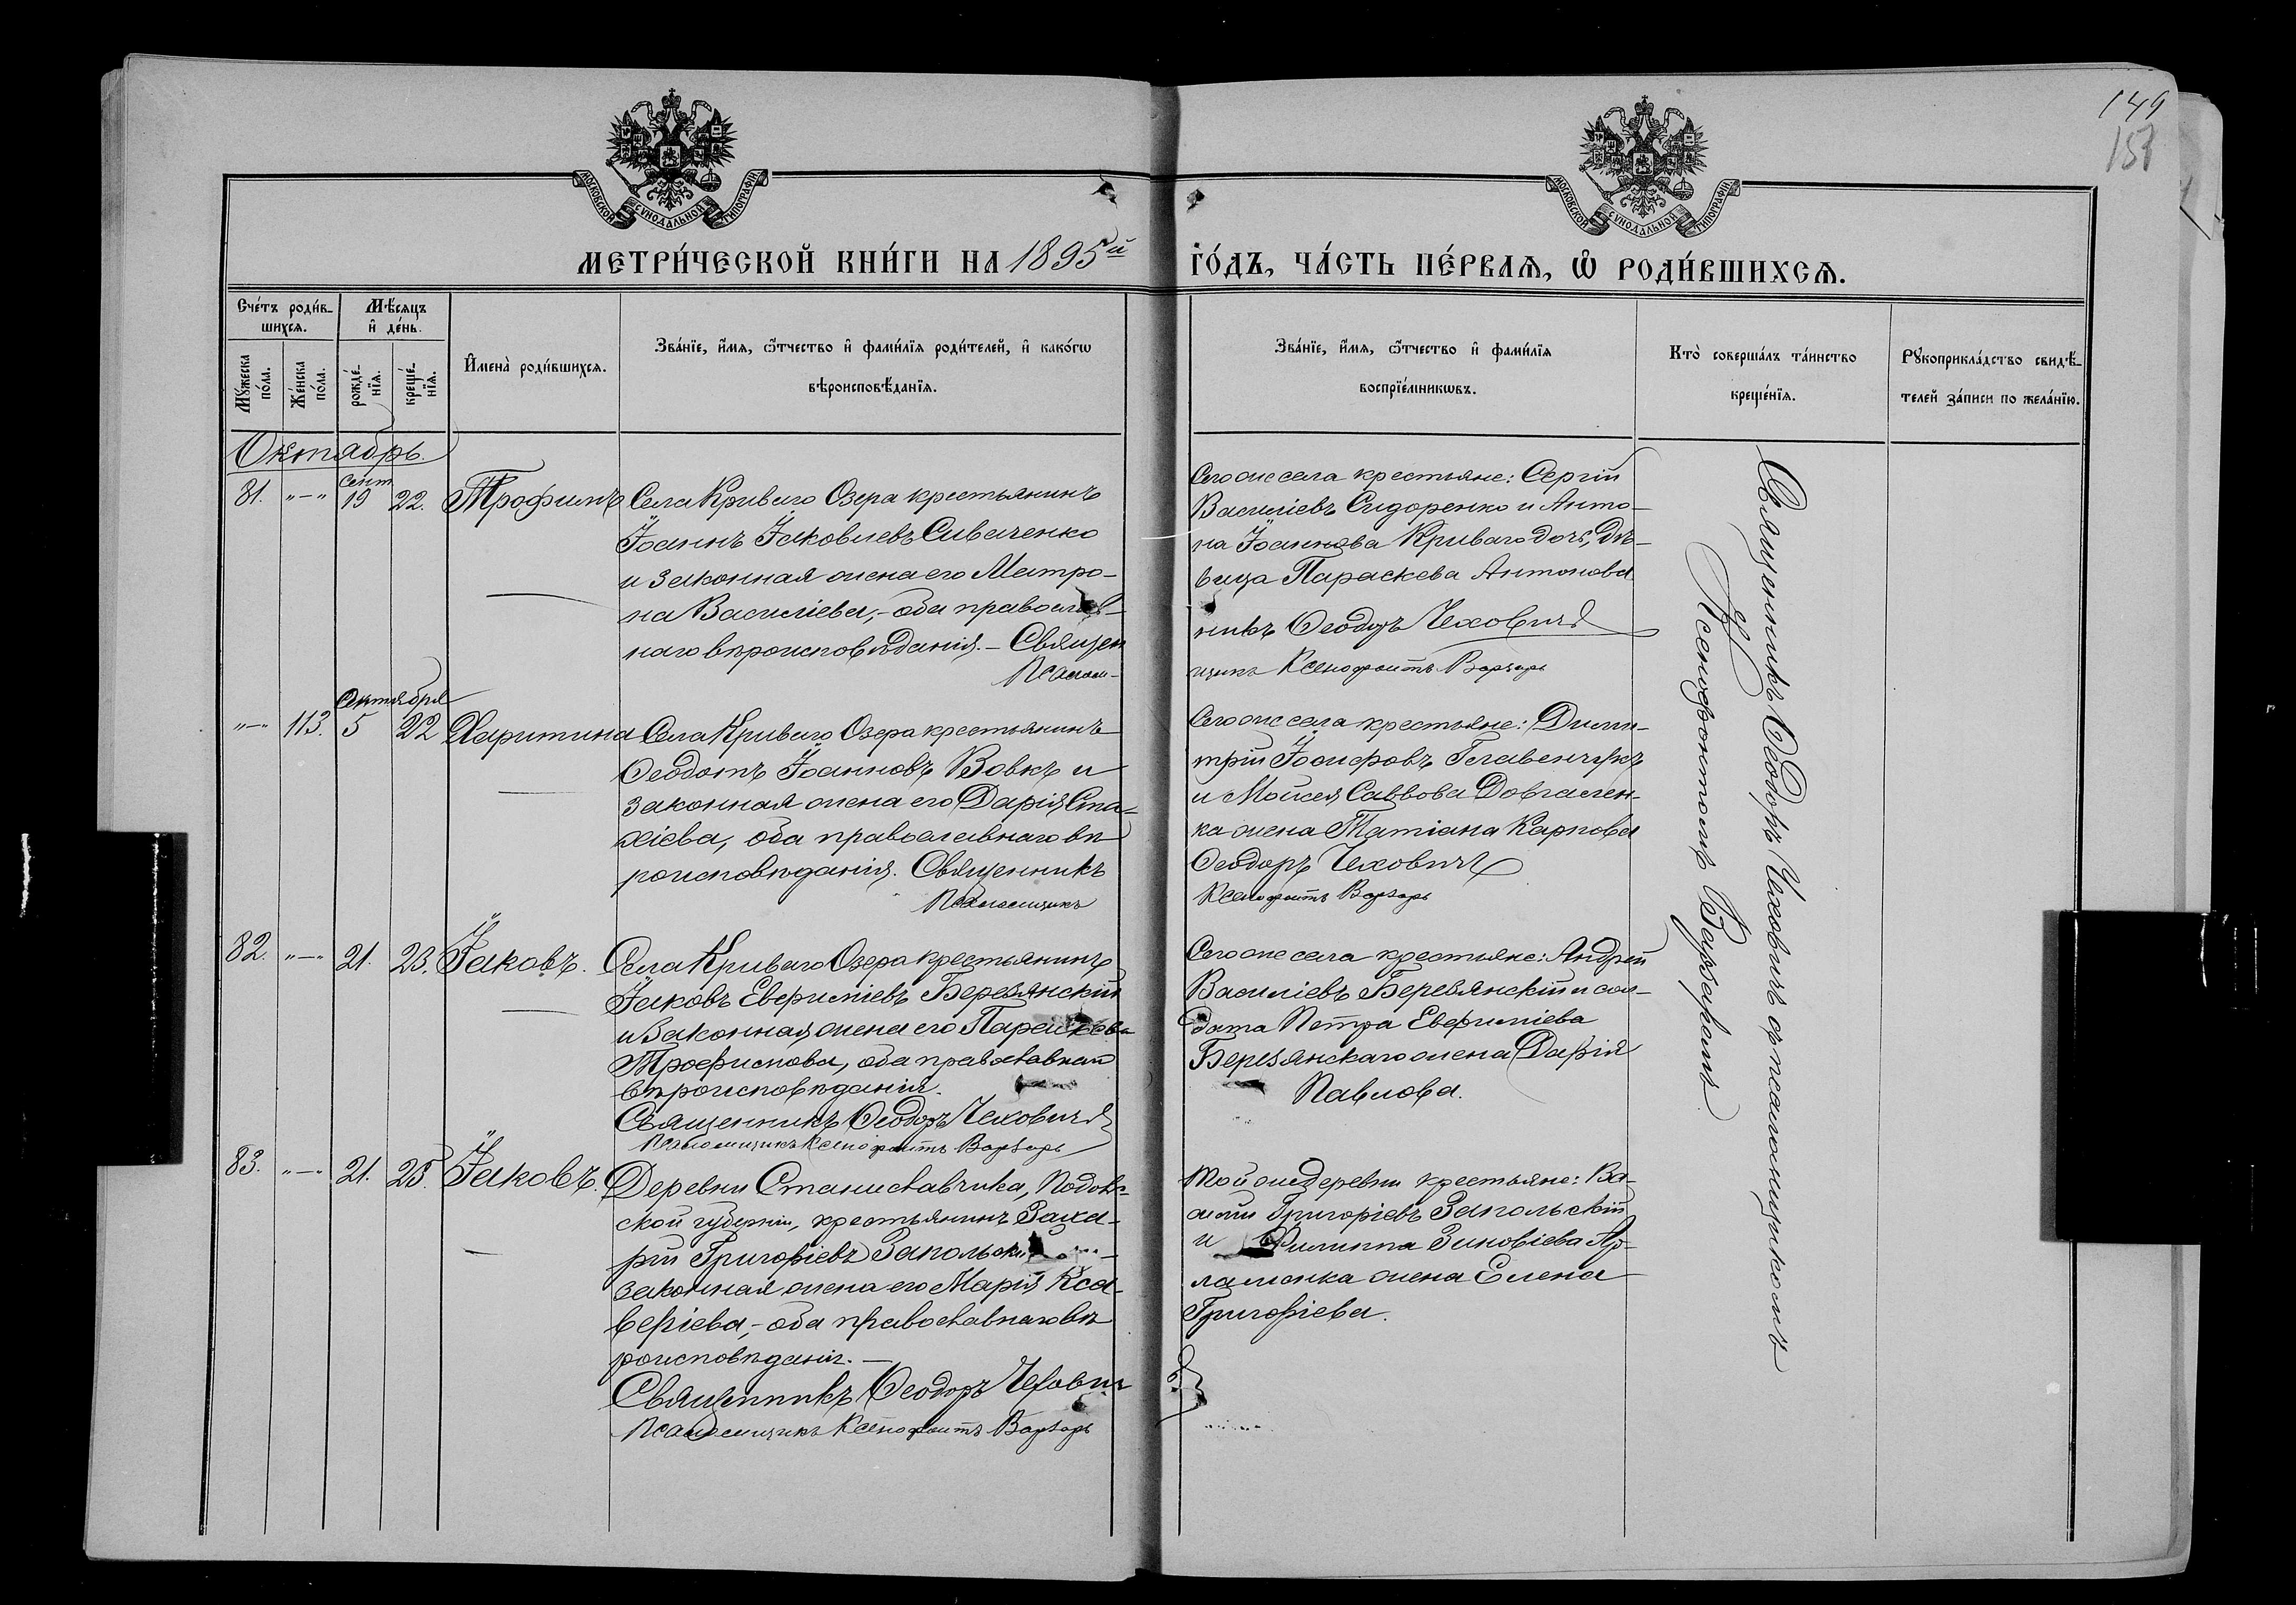 149
157
МОСКОВСКОЙ СѴНОДАЛЬНОЙ ТИПОГРАФІИ
МОСКОВСКОЙ СѴНОДАЛЬНОЙ ТИПОГРАФІИ
МЕТРИ́ЧЕСКОЙ КНИ́ГИ НА 1895й
ГО́ДЪ, ЧА́СТЬ ПЕ́РВАѦ, Ѡ РОДИ́ВШИХСѦ.
Сче́тъ роди́в-
шихсѧ.
Мѣ́сѧцъ
и де́нь.
Мꙋ́жеска
по́ла.
Же́нска
по́ла.
рожде́-
нїѧ.
креще́-
нїѧ.
Имена̀ роди́вшихсѧ.
Зва́нїе, и́мѧ, ѻ҆́тчество и҆ фами́лїѧ роди́телей, и҆ како́гѡ
вѣроисповѣ́данїѧ.
Зва́нїе, и́мѧ, ѻ҆́тчество и҆ фами́лїѧ
воспрїе́мникѡвъ.
Кто̀ соверша́лъ та́инство
креще́нїѧ.
Рꙋкоприкла́дство свидѣ́-
телей за́писи по жела́нїю.
Октябрь.
81. "—" Сент. 19 22. Трофимъ
Села Криваго Озера крестьянинъ
Іоаннъ Іаковлевъ Сиваченко
и законная жена его Матро-
на Василіева,- оба православ-
наго вѣроисповѣданія.- Священ
Псалом-
Сего же села крестьяне: Сергій
Василіевъ Сидоренко и Анто-
на Іоаннова Криваго дочь, дѣ-
вица Параскева Антонова
никъ Ѳеодоръ Чеховичъ
щикъ Ксенофонтъ Варварь
"—" 113. Октября 5 22 Харитина
Села Криваго Озера крестьянинъ
Ѳеодотъ Іоанновъ Вовкъ и
законная жена его Дарія Ста-
хіева, оба православнаго вѣ
роисповѣданія. Священникъ
Псаломщикъ
Сего же села крестьяне: Дими-
трій Іосифовъ Главенчукъ
и Мойсея Саввова Довгален-
ка жена Татіана Карпова
Ѳеодоръ Чеховичъ
Ксенофонтъ Варварь
82. "—" 21. 23. Іаковъ.
Села Криваго Озера крестьянинъ
Іаковъ Евфиміевъ Березянскій
и законная жена его Параскева
Трофимова, оба православнаго
вѣроисповѣданія.
Священникъ Ѳеодоръ Чеховичъ
Псаломщикъ Ксенофонтъ Варварь
Сего же села крестьяне: Андрей
Василіевъ Березянскій и сол-
дата Петра Евфиміева
Березянскаго жена Дарія
Павлова.
83. "—" 21. 25. Іаковъ.
Деревни Станиславчика, Подоль-
ской губерніи, крестьянинъ Заха-
рій Григоріевъ Запольскій
законная жена его Марія Кса-
веріева,- оба православнаго вѣ
роисповѣданія.—
Священникъ Ѳеодоръ Чехович
Псаломщикъ Ксенофонтъ Варварь
Той же деревни крестьяне: Ва-
силій Григоріевъ Запольскій
и Филиппа Зиновіева
жена Елена
Григоріева.
Священникъ Ѳеодоръ Чеховичъ съ псаломщикомъ
Ксенофонтомъ Варваремъ.